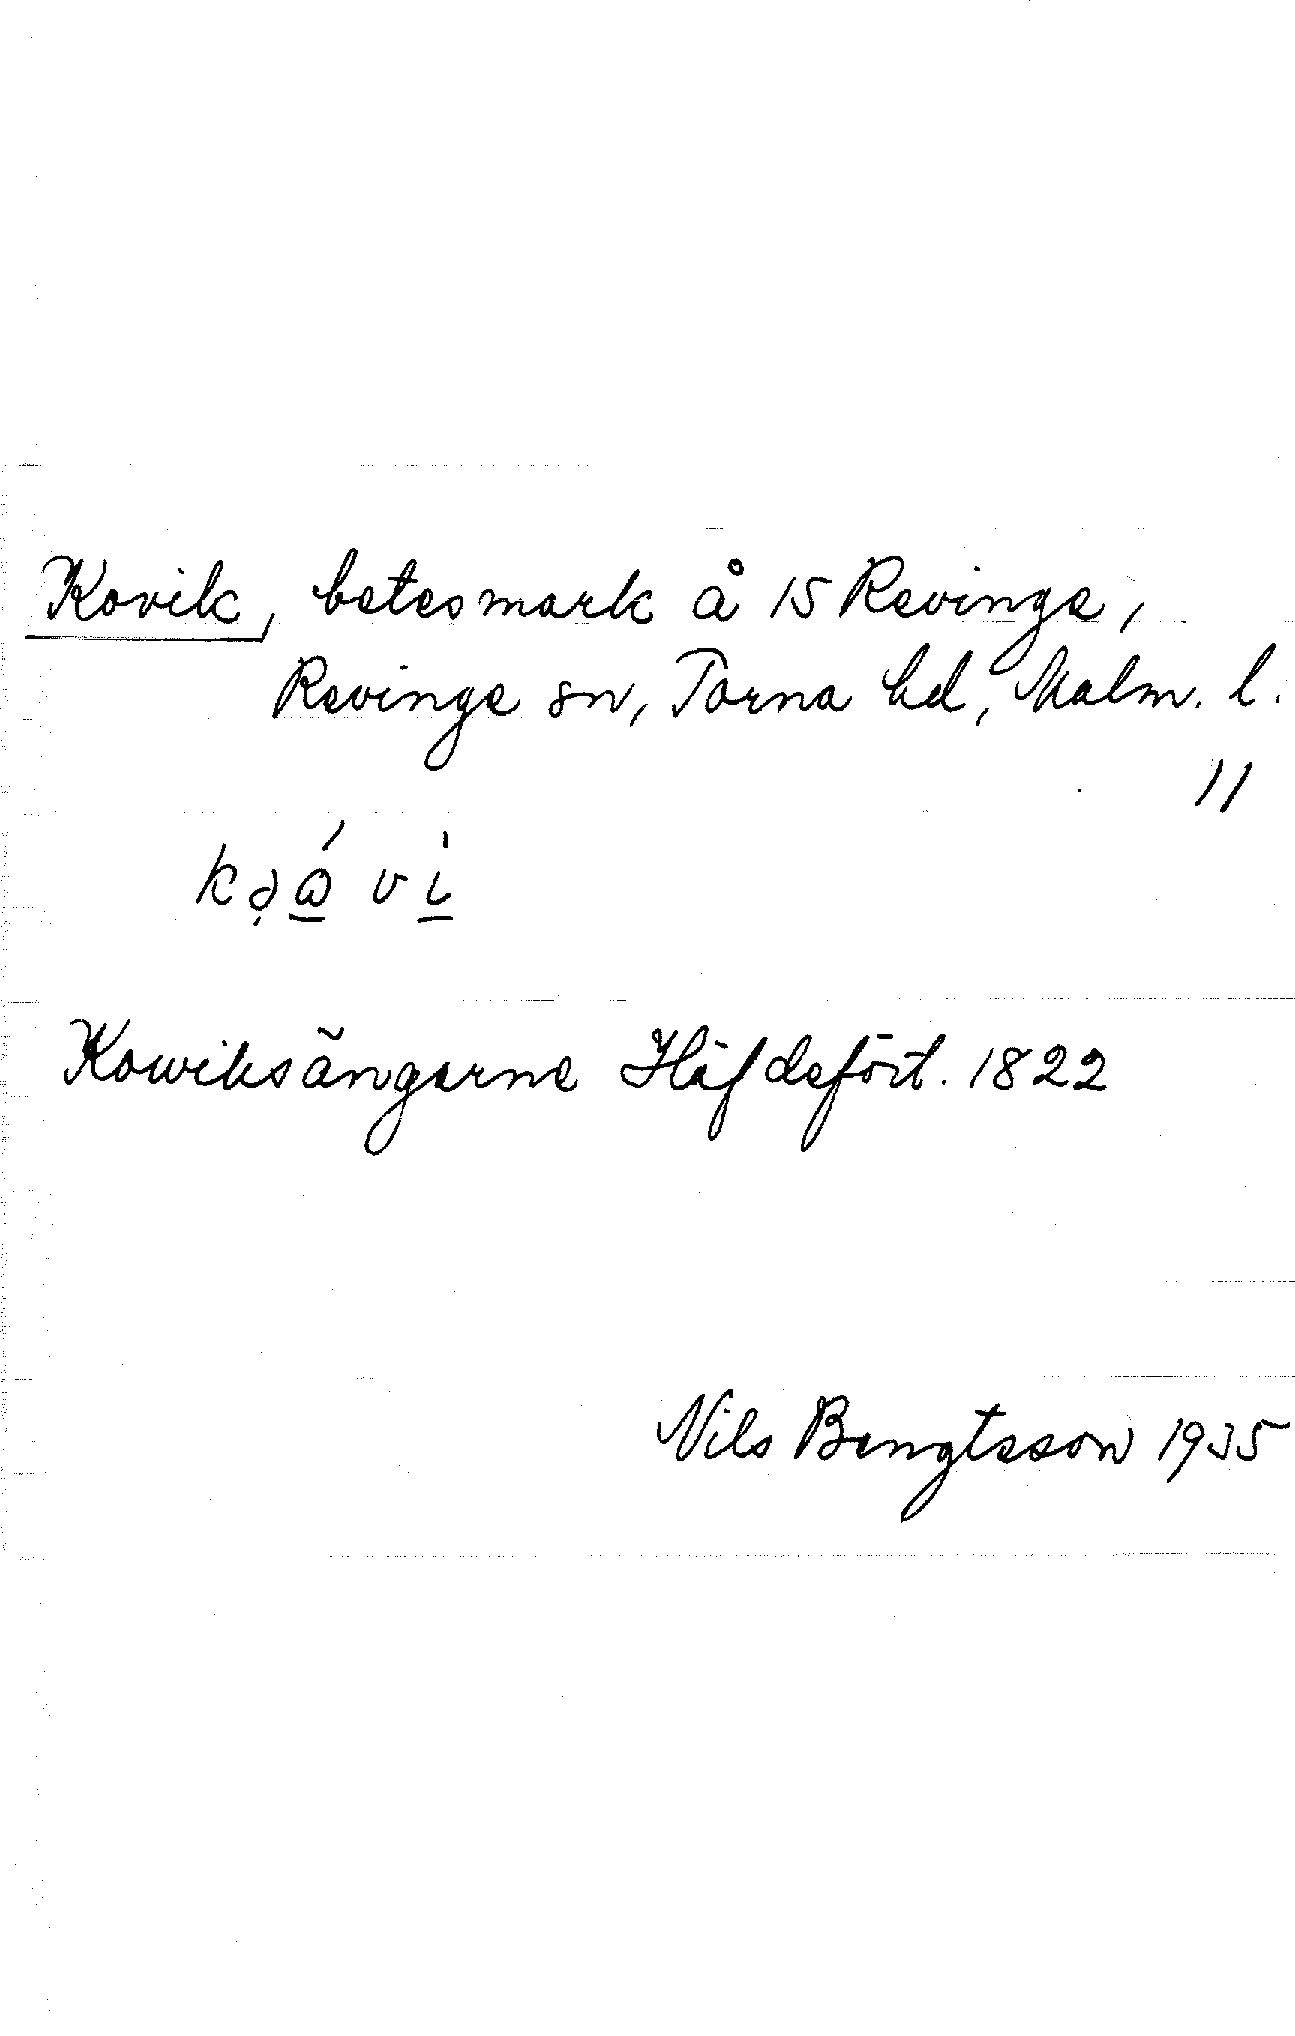 Kovik, betesmark å 15 Revinge,
Revinge sn, Torna hd, Malm. l.
11
Kowiksängarne Häfdefört. 1822
Nils Bengtsson 1935